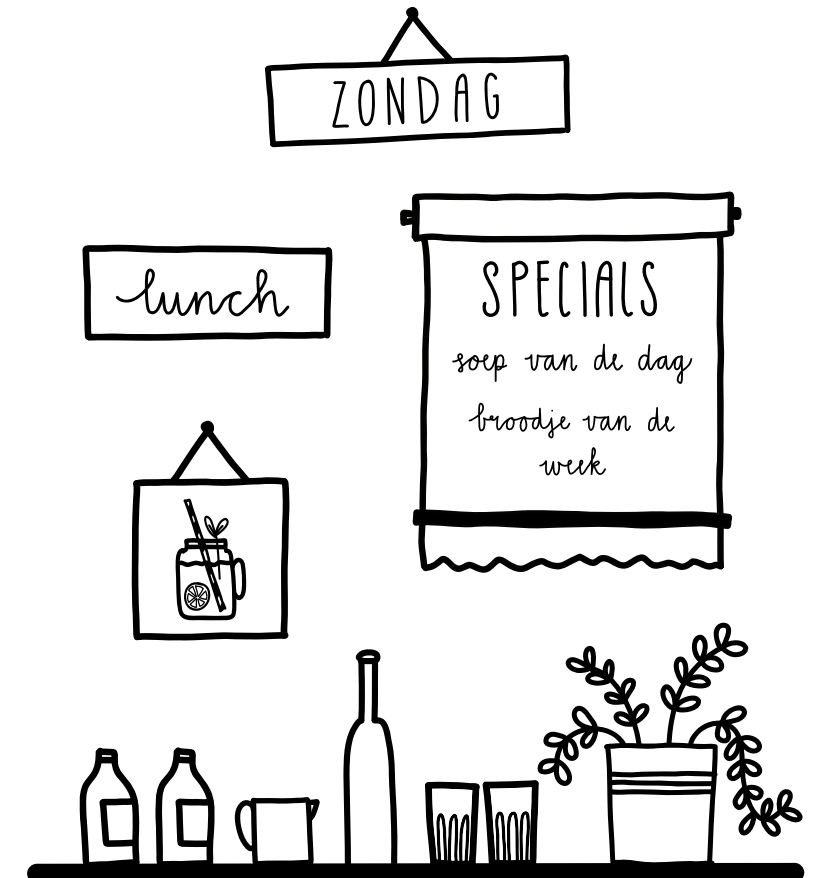 ZONDAG
lunch
SPECIALS
soep van de dag
broodje van de
week